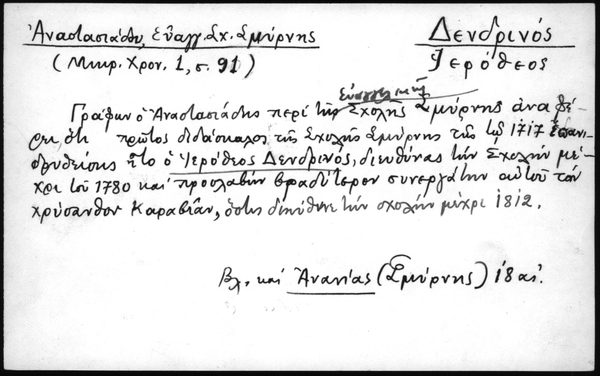 Ἀναστασιάδου, Εὐαγγ. Σχ. Σμύρνης
(Μικρ. Χρον. 1, σ. 91)
Δενδρινός
Ἱερόθεος
Γράφων ὁ Ἀναστασιάδης περὶ τῆς Εὐαγγελικῆς Σχολῆς Σμύρνης ἀναφέ-
ρει, ὅτι πρῶτος διδάσκαλος τῆς Σχολῆς Σμύρνης τῆς τῷ 1717
ἦτο ὁ Ἱερόθεος Δενδρινός, διευθύνας τὴν Σχολὴν μέ-
χρι τοῦ 1780 καὶ προσλαβὼν βραδύτερον συνεργάτην αὐτοῦ τὸν
Χρύσανθον Καραβίαν, ὅστις διηύθυνε τὴν σχολὴν μέχρι 1812.
Βλ. καὶ Ἀνανίας (Σμύρνης) 18 αἰ.